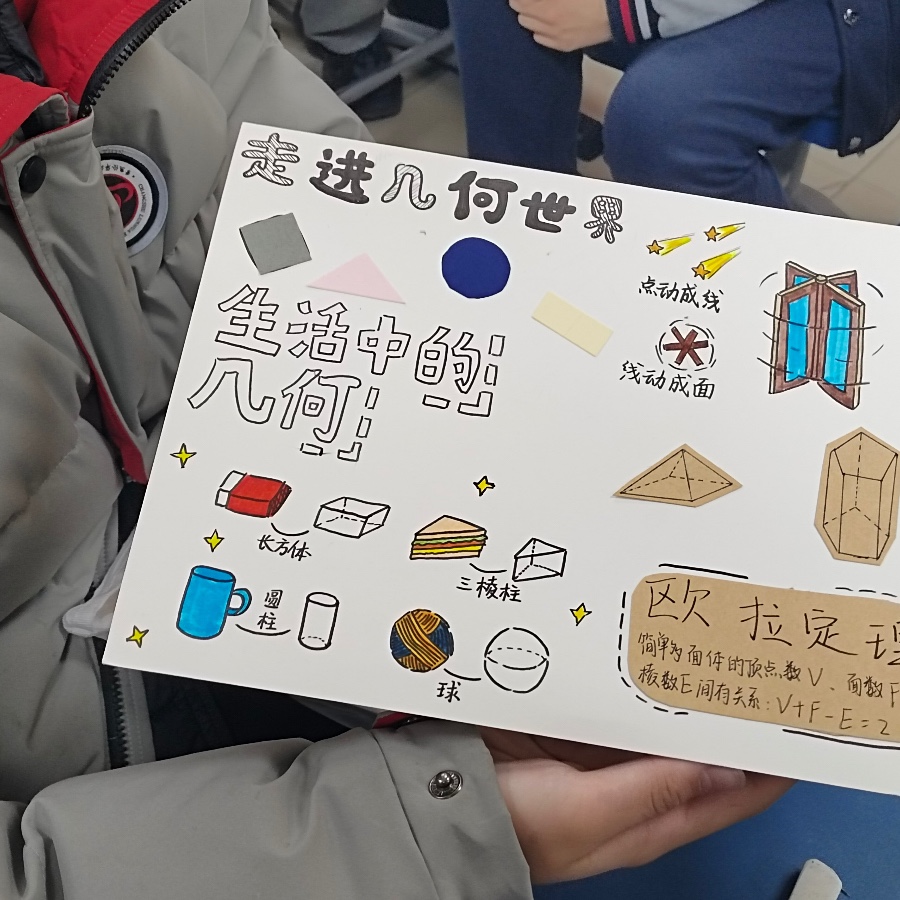 走进几何世界
点动成线
线动成面
生活中的
几何
长方体
三棱柱
圆柱
球
欧拉定理
简单多面体的顶点数V、面数F
棱数E间有关系:V+F-E=2